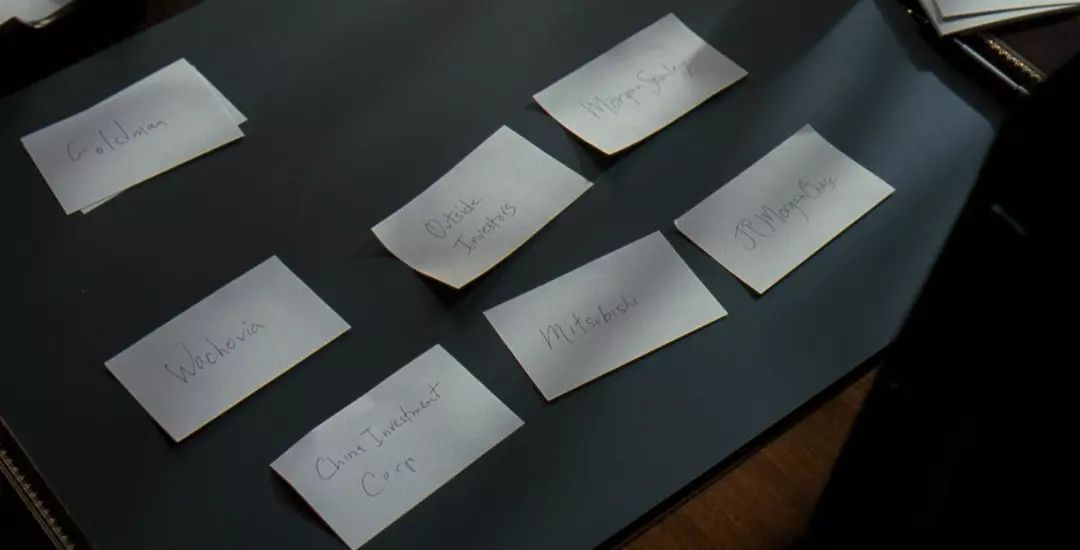 Goldman
Morgan Stanley
Outside
Investors
JP Morgan Chase
Mitsubishi
Wachovia
China Investment
Corp